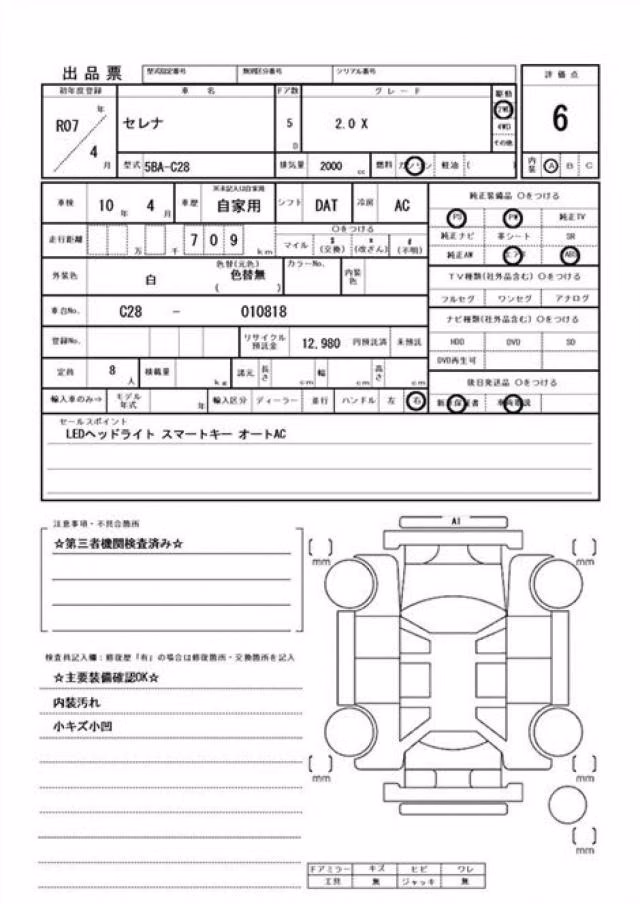 出品票 型式指定番号 類別区分番号 シリアル番号
初年度登録 車名 ドア数 グレード 駆動 評価点
R07 年 4 月 セレナ 5 D 2.0 X 2WD 4WD その他 6
型式 5BA-C28 排気量 2000 cc 燃料 ガソリン 軽油 ( ) 内装 A B C
車検 10 年 4 月 車歴 ※未記入は自家用 自家用 シフト DAT 冷房 AC
純正装備品 ○をつける
PS PW 純正TV
純正ナビ 革シート SR
純正AW エアB ABS
走行距離 万 千 7 0 9 km ○をつける マイル $ (交換) * (改ざん) # (不明)
外装色 白 色替(元色) 色替無 ( ) カラーNo. 内装色
TV種類(社外品含む) ○をつける
フルセグ ワンセグ アナログ
車台No. C28 - 010818
ナビ種類(社外品含む) ○をつける
HDD DVD SD
DVD再生可
登録No. リサイクル預託金 12,980 円預託済 未預託
定員 8 人 積載量 kg 諸元 長さ cm 幅 cm 高さ cm
後日発送品 ○をつける
輸入車のみ⇒ モデル年式 年 輸入区分 ディーラー 並行 ハンドル 左 右
セールスポイント
LEDヘッドライト スマートキー オートAC
注意事項・不具合箇所
☆第三者機関検査済み☆
A1
[ ] mm [ ] mm
検査員記入欄：修復歴「有」の場合は修復箇所・交換箇所を記入
☆主要装備確認OK☆
内装汚れ
小キズ小凹
[ ] mm [ ] mm
[ ] mm
ドアミラー キズ ヒビ ワレ
工具 無 ジャッキ 無